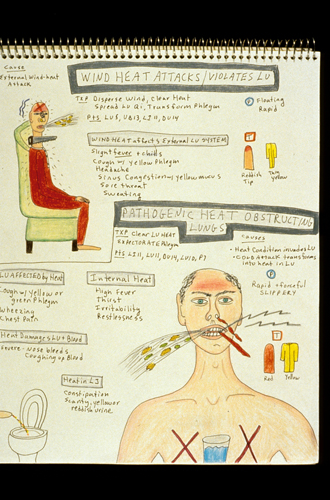 Cause
External Wind-heat
Attack
WIND HEAT ATTACKS/VIOLATES LU
TXP Disperse Wind, Clear Heat
Spread Lu Qi, Transform Phlegm
Pts LU5, UB13, LI11, DU14
P Floating
Rapid
WIND HEAT affects External LU SYSTEM
Slight fever + chills
Cough w/ yellow Phlegm
Headache
Sinus Congestion w/ yellow mucus
Sore throat
Sweating
T
Reddish
Tip
Thin
yellow
PATHOGENIC HEAT OBSTRUCTING
LUNGS
TXP Clear LU Heat
Expectorate Phlegm
Pts LI11, LU1, DU14, LU10, P/C
Causes
- Heat Condition invades LU
- COLD ATTACK transforms
into heat in Lu
P
Rapid + forceful
SLIPPERY
LU AFFECTED by Heat
Cough w/ yellow or
green Phlegm
Wheezing
Chest Pain
Internal Heat
High Fever
Thirst
Irritability
Restlessness
Heat Damages LU + Blood
Severe - Nose bleeds
Coughing up Blood
T
Red
Yellow
Heat in LI
Constipation
Scanty, yellow or
reddish urine